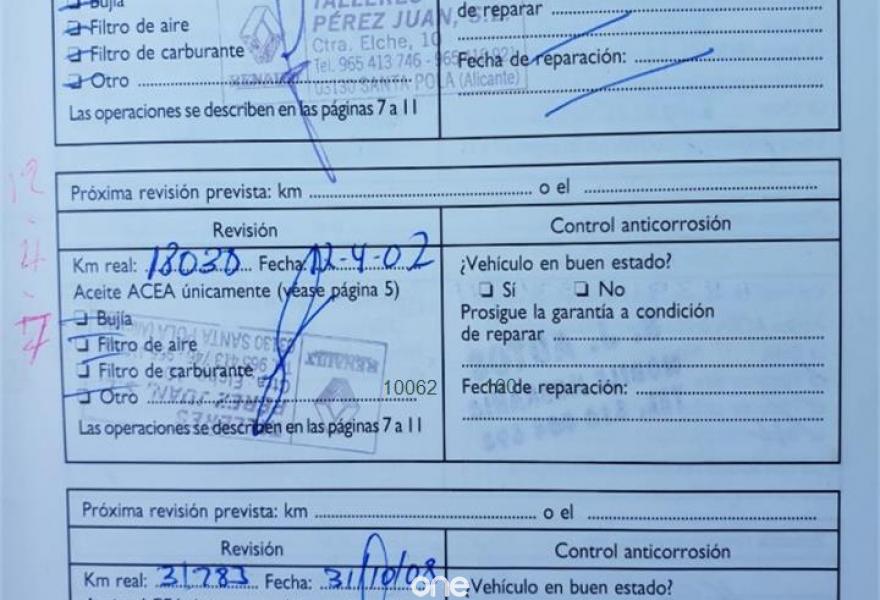 Bujía
Filtro de aire
Filtro de carburante
Otro
Las operaciones se describen en las páginas 7 a 11
TALLERES
PÉREZ JUAN, S.L.
Ctra. Elche, 10
Tel. 965 413 746 - 965
03130 SANTA POLA (Alicante)
RENAULT
de reparar
Fecha de reparación:
12
-
4
-
7
Próxima revisión prevista: km o el
Revisión
Km real: 18030 Fecha: 12-4-02
Aceite ACEA únicamente (véase página 5)
Bujía
Filtro de aire
Filtro de carburante
Otro
Las operaciones se describen en las páginas 7 a 11
RENAULT
TALLERES
PÉREZ JUAN,
Ctra. Elche,
03130 SANTA POLA
10062
100
Control anticorrosión
¿Vehículo en buen estado?
Sí No
Prosigue la garantía a condición
de reparar
Fecha de reparación:
Próxima revisión prevista: km o el
Revisión
Km real: 31783 Fecha: 31/10/08
Control anticorrosión
¿Vehículo en buen estado?
one